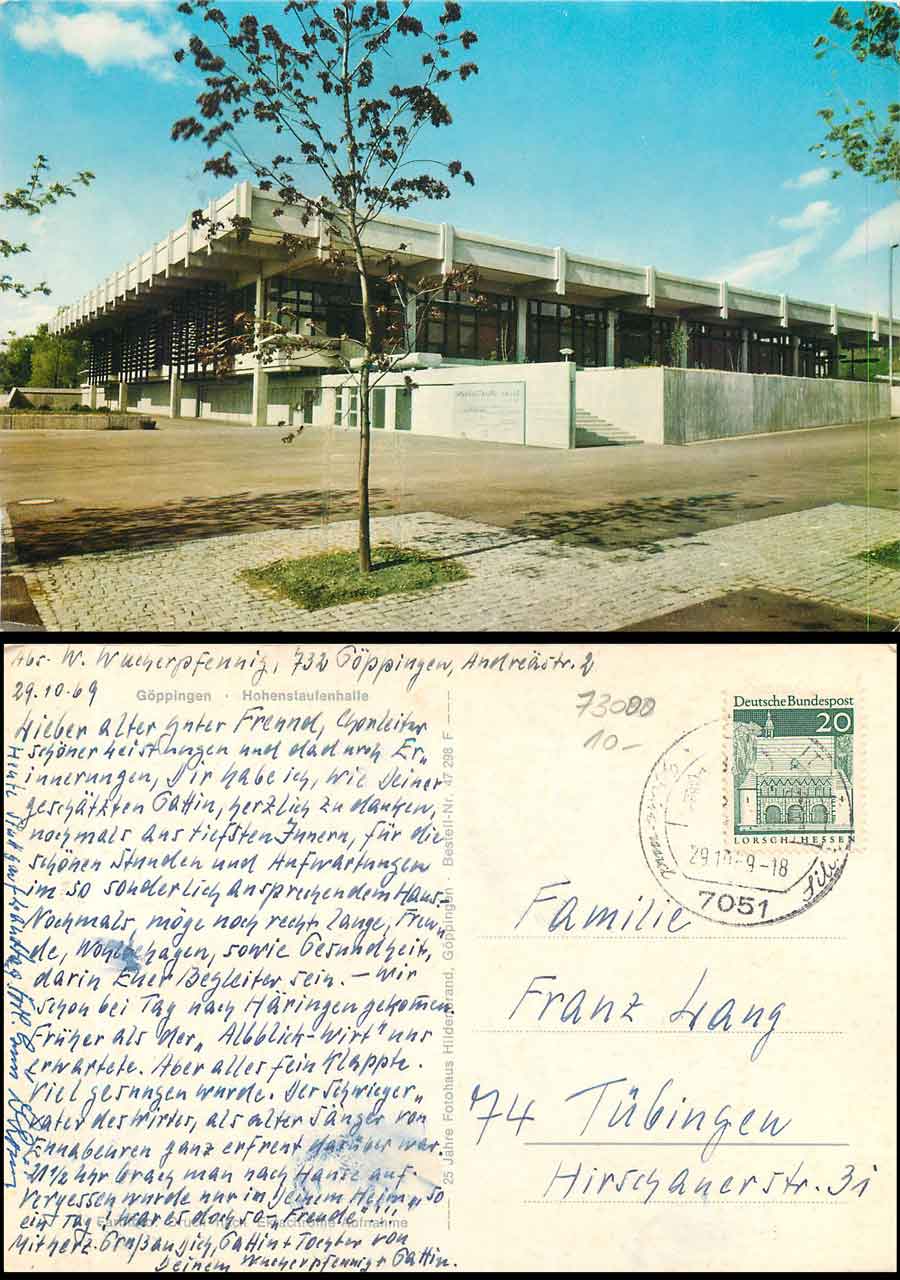 Abs. W. Wucherpfennig, 732 Göppingen, Andreästr. 2
29.10.69
Göppingen · Hohenstaufenhalle
Lieber alter guter Freund, Chorleiter
schöner Leistungen und dadurch Er„
innerungen, Dir habe ich, wie Deiner
geschätzten Gattin, herzlich zu danken,
nochmals aus tiefsten Innern, für die
schönen Stunden und Aufwartungen
im so sonderlich ansprechendem Haus.
Nochmals, möge noch recht lange, Freu„
de, Wohlbehagen, sowie Gesundheit,
darin Euer Begleiter sein. – Wir
schon bei Tag nach Haringen gekommen.
Früher als der „Albblick-Wirt" uns
erwartete. Aber alles fein klappte.
Viel gesungen wurde. Der Schwieger„
vater des Wirtes, als alter Sänger von
Ennabeuren ganz erfreut darüber war.
21 1/2 Uhr brach man nach Hause auf
Vergessen wurde nur in Deinem Heim „so
ein Tag
Mit herz. Gruß an Dich, Gattin + Tochter von
Deinem Wucherpfennig + Gattin.
25 Jahre Fotohaus Hildenbrand, Göppingen · Bestell-Nr. 47 298 F
73000
10.-
Deutsche Bundespost
20
LORSCH/HESSEN
29.10
-9-18
7051
Familie
Franz Lang
74 Tübingen
Hirschauerstr. 31